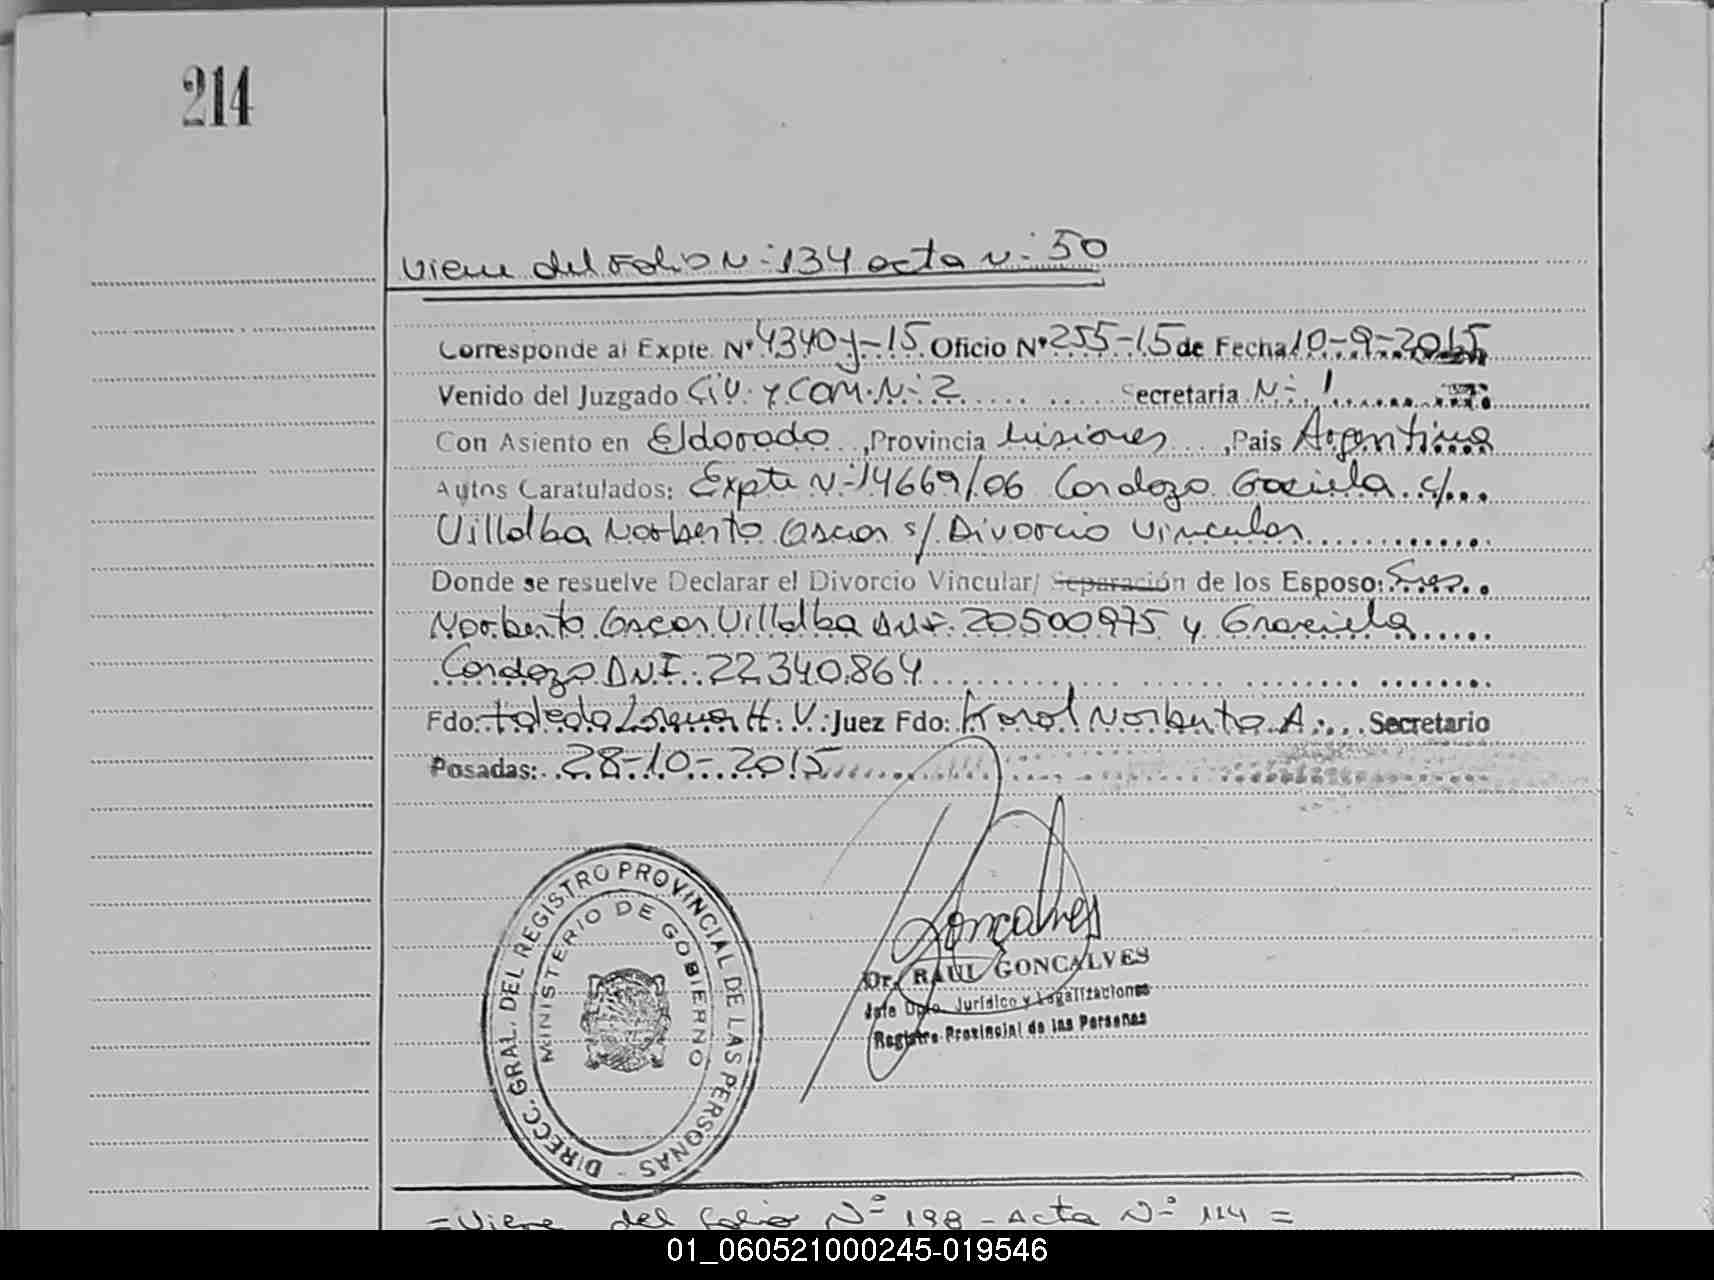 214
Viene del Folio N: 134 acta N: 50
Corresponde al Expte. Nº 4340 y-15 Oficio Nº 255-15 de Fecha 10-9-2015
Venido del Juzgado Civ. y Com. N: 2 Secretaria N: 1
Con Asiento en Eldorado, Provincia Misiones, Pais Argentina
Autos Caratulados: Expte N: 14669/06 Cordozo Graciela c/
Villalba Norberto Oscar s/ Divorcio Vincular
Donde se resuelve Declarar el Divorcio Vincular/ Separación de los Esposo: Sres.
Norberto Oscar Villalba D.N.I. 20500975 y Graciela
Cordozo D.N.I. 22.340.864
Fdo: Toledo H. V. Juez Fdo: Korol Norberto A. Secretario
Posadas: 28-10-2015
DIRECC. GRAL. DEL REGISTRO PROVINCIAL DE LAS PERSONAS -
MINISTERIO DE GOBIERNO
Goncalves
Dr. RAUL GONCALVES
Jefe Dpto. Jurídico y Legalizaciones
Registro Provincial de las Personas
= Viene del folio Nº 198 - Acta Nº 114 =
01_060521000245-019546